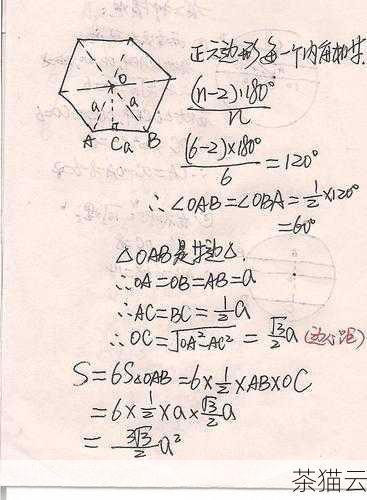 正六边形每一个内角相等
(n-2)·180°
n
(6-2)×180°
6
=120°
∴∠OAB=∠OBA=½×120°
=60°
O
a
a
A
C
a
B
△OAB是等边△.
∴OA=OB=AB=a
∴AC=BC=½a
∴OC=√OA²-AC² = √3/2 a (边心距)
S=6S△OAB=6×½×AB×OC
=6×½×a×√3/2 a
= 3√3/2 a²
茶猫云